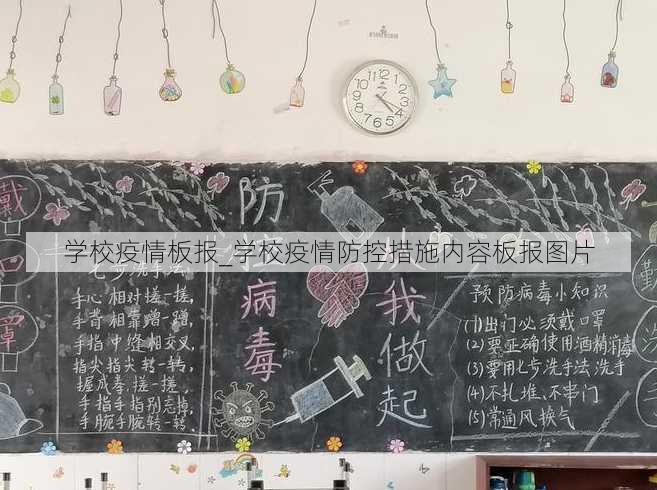 12
1
2
3
4
5
6
7
8
9
10
11
学校疫情板报_学校疫情防控措施内容板报图片
戴
罩
七步洗手法:
手心相对搓一搓,
手背相靠蹭一蹭,
手指中缝相交叉,
指尖指尖转一转,
握成拳搓一搓,
手指手指别忘掉,
手腕手腕转一转,
防
病毒
我做起
预防病毒小知识
(1)出门必须戴口罩
(2)要正确使用酒精消
(3)要用七步洗手法洗手
(4)不扎堆、不串门
(5)常通风换气
洗
手